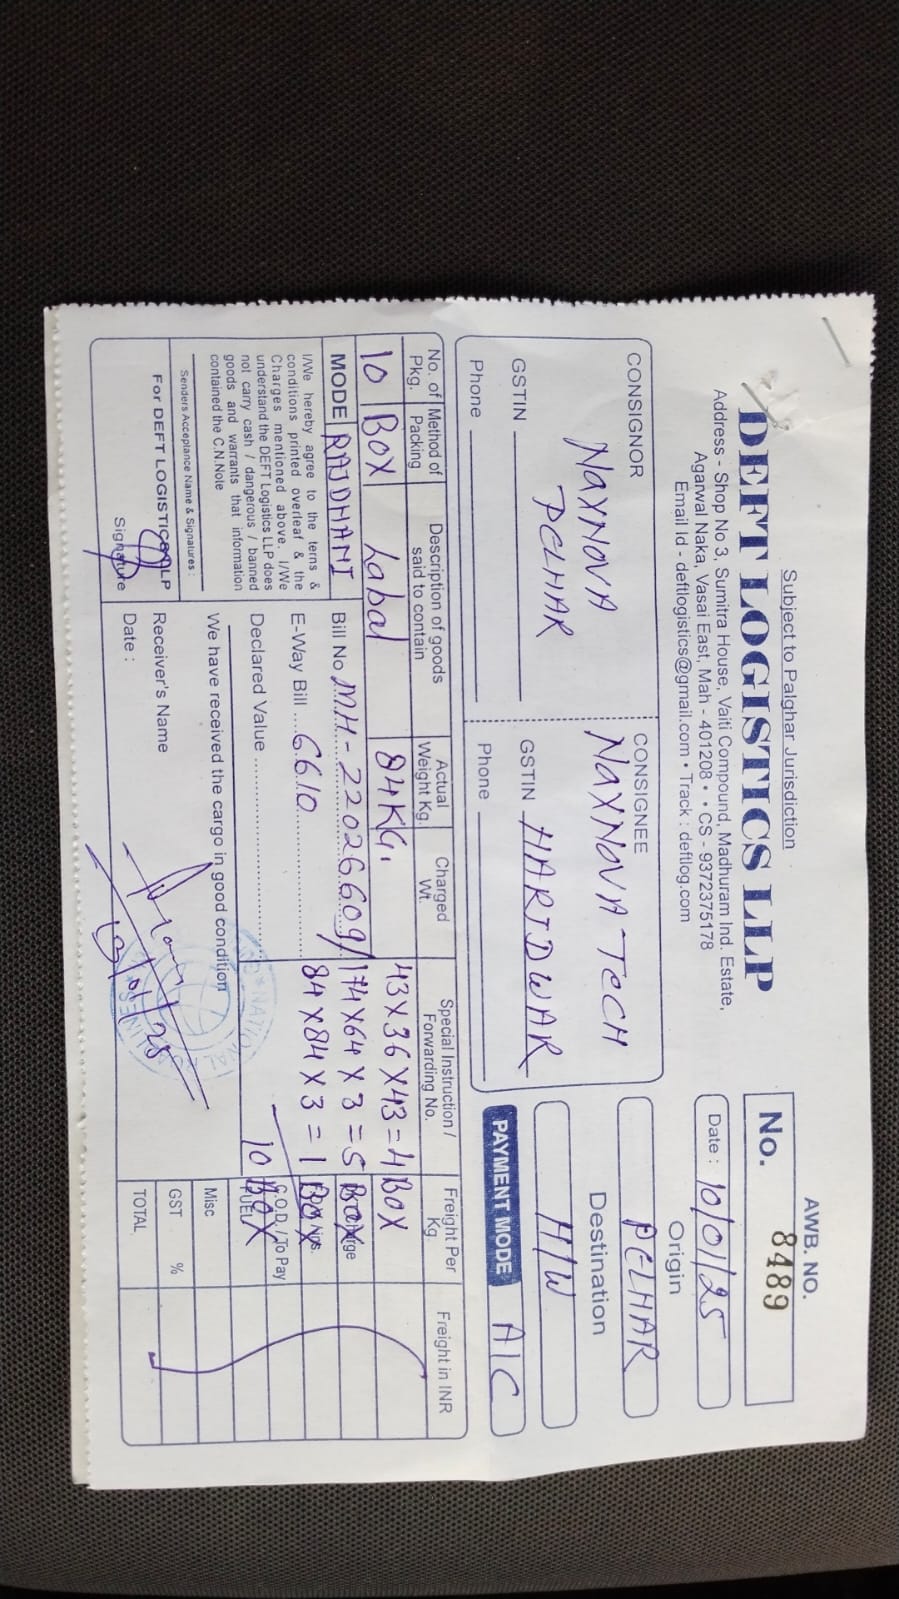 Subject to Palghar Jurisdiction
DEFT LOGISTICS LLP
Address - Shop No 3, Sumitra House, Vaiti Compound, Madhuram Ind. Estate,
Agarwal Naka, Vasai East, Mah - 401208 • • CS - 9372375178
Email Id - deftlogistics@gmail.com • Track : deftlog.com
AWB. NO.
No. 8489
Date : 10/01/25
CONSIGNOR
NAXNOVA
PELHAR
GSTIN
Phone
CONSIGNEE
NAXNOVA TECH
GSTIN HARIDWAR
Phone
Origin
PELHAR
Destination
H/W
PAYMENT MODE A/C
No. of Pkg. Method of Packing Description of goods said to contain Actual Weight Kg. Charged Wt. Special Instruction / Forwarding No. Freight Per Kg. Freight in INR
10 BOX Labal 84KG. 43X36X43=4 BOX
174X64X3=5 BOX
84X84X3=1 BOX
10 BOX
MODE RAJDHANI
Bill No MH-22026609/
E-Way Bill 6610
Declared Value
I/We hereby agree to the terns &
conditions printed overleaf & the
Charges mentioned above. I/We
understand the DEFT Logistics LLP does
not carry cash / dangerous / banned
goods and warrants that information
contained the C.N.Note
Senders Acceptance Name & Signatures :
For DEFT LOGISTICS LLP
Signature
We have received the cargo in good condition
Receiver's Name
Date :
C.O.D / To Pay
FUEL
Misc
GST %
TOTAL